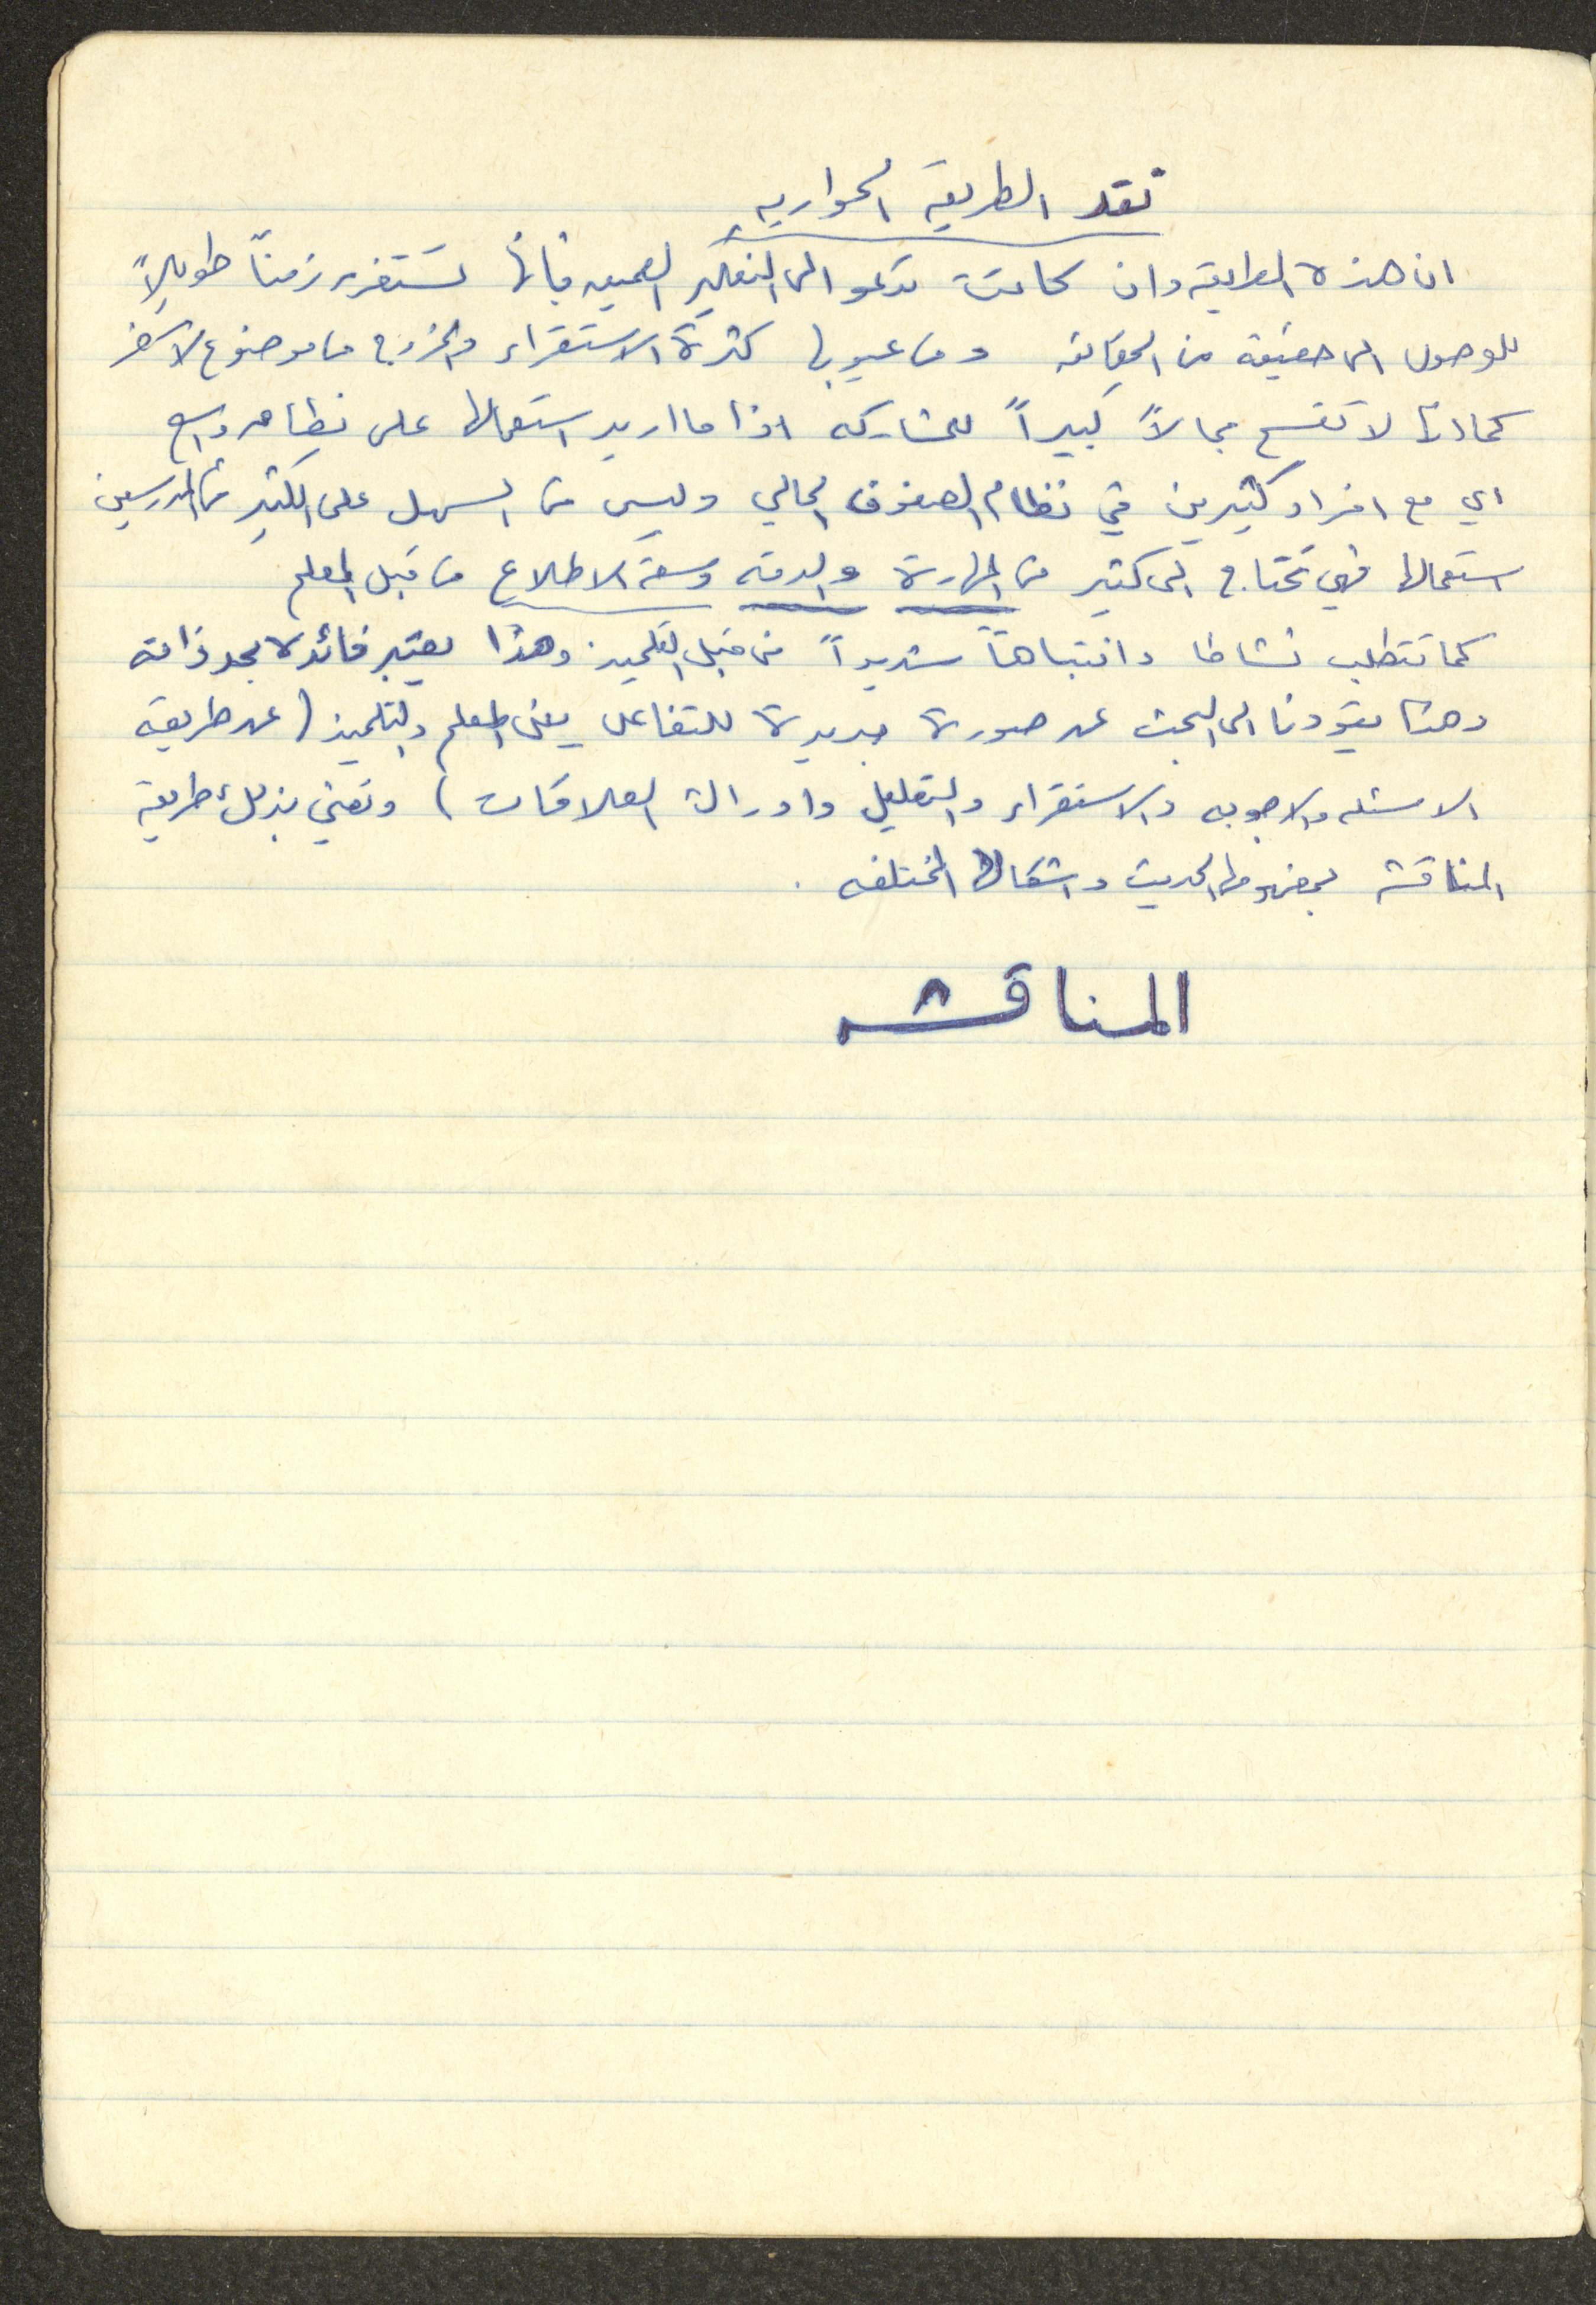 نقد الطريقه الحواريه
ان هذه الطريقه وان كانت تدعو الى التفكير العميق فانها تستغرق زمناً طويلاً
للوصول الى حقيقة من الحقائق ومن عيوبها كثرة الاستقراء والخروج من موضوع لآخر
كما انها لا تفسح مجالاً كبيراً للمشاركه اذا ما اريد استعمالها على نطاق واسع
اي مع افراد كثيرين في نظام الصفوف الحالي وليس من السهل على الكثير من المدرسين
استعمالها فهي تحتاج الى كثير من المهارة والدقه وسعة الاطلاع من قبل المعلم
كما تتطلب نشاطا وانتباهاً شديداً من قبل التلميذ وهذا يعتبر فائده بحد ذاته
وهذا يقودنا الى البحث عن صورة جديدة للتفاعل بين المعلم والتلميذ (عن طريق
الاسئله والاجوبه والاستقراء والتعليل وادراك العلاقات) ونعني بذلك طريقة
المناقشه بمفهومها الحديث واشكالها المختلفه .
المناقشه